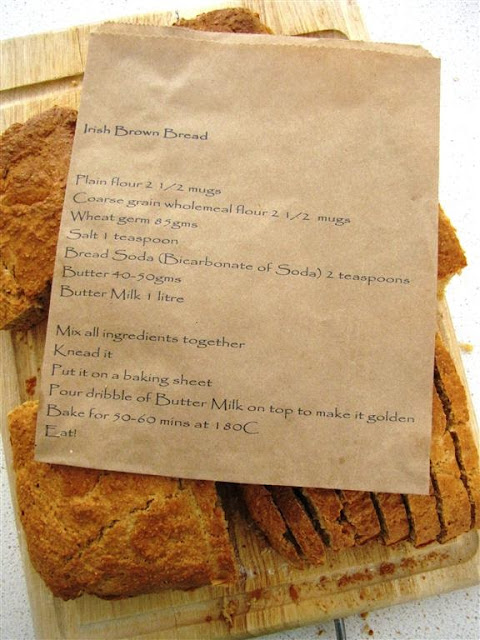 Irish Brown Bread
Plain flour 2 1/2 mugs
Coarse grain wholemeal flour 2 1/2 mugs
Wheat germ 85gms
Salt 1 teaspoon
Bread Soda (Bicarbonate of Soda) 2 teaspoons
Butter 40-50gms
Butter Milk 1 litre
Mix all ingredients together
Knead it
Put it on a baking sheet
Pour dribble of Butter Milk on top to make it golden
Bake for 50-60 mins at 180C
Eat!